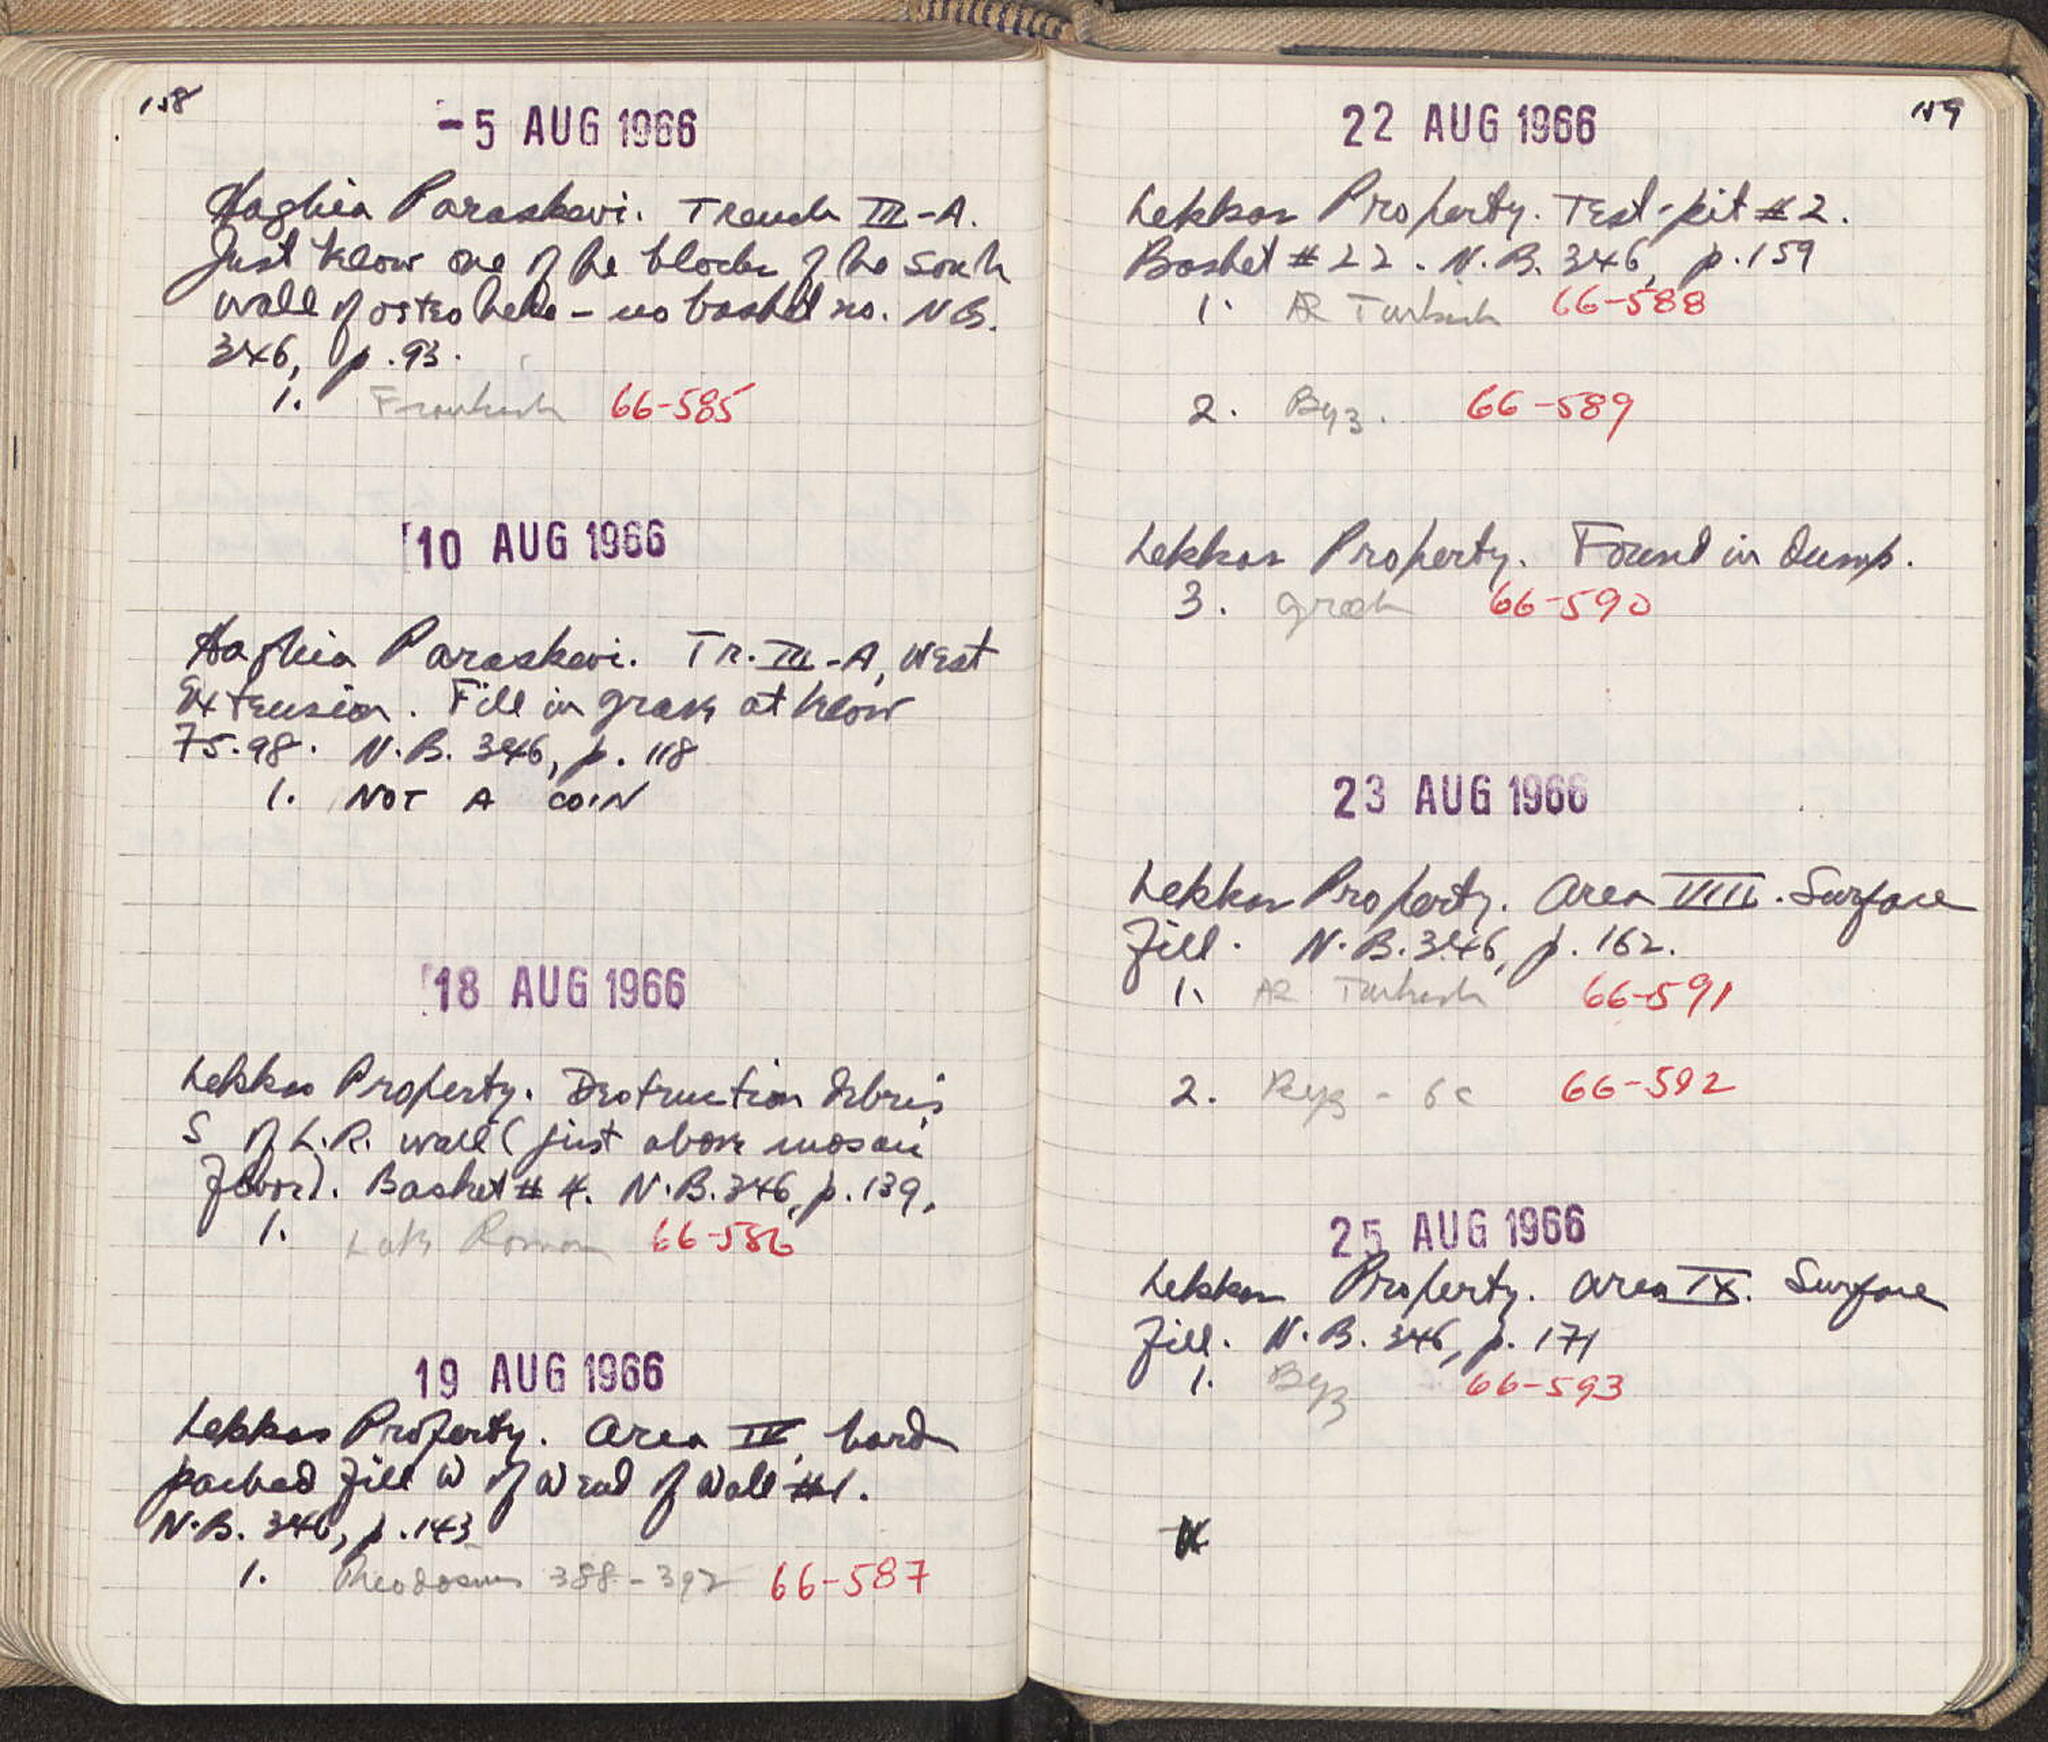 158
-5 AUG 1966
Haghia Paraskevi. Trench III-A.
Just below one of the blocks of the south
wall of osteotheke - no basket no. N.B.
346, p. 93.
1. Frankish 66-585
10 AUG 1966
Haghia Paraskevi. Tr. III-A, West
Extension. Fill in grave at below
75.98. N.B. 346, p. 118
1. NOT A COIN
18 AUG 1966
Lekkas Property. Destruction debris
S of L.R. wall (just above mosaic
floor). Basket # 4. N.B. 346, p. 139.
1. Late Roman 66-586
19 AUG 1966
Lekkas Property. Area IV, hard
packed fill W of W end of Wall #1.
N.B. 346, p. 143
1. Theodosius 388-392 66-587
159
22 AUG 1966
Lekkas Property. Test-pit #2.
Basket #22. N.B. 346, p. 159
1. AR Turkish 66-588
2. Byz. 66-589
Lekkas Property. Found in dump.
3. Greek 66-590
23 AUG 1966
Lekkas Property. Area VIII. Surface
fill. N.B. 346, p. 162.
1. AR Turkish 66-591
2. Byz - 6c 66-592
25 AUG 1966
Lekkas Property. Area IX. Surface
fill. N.B. 346, p. 171
1. Byz 66-593